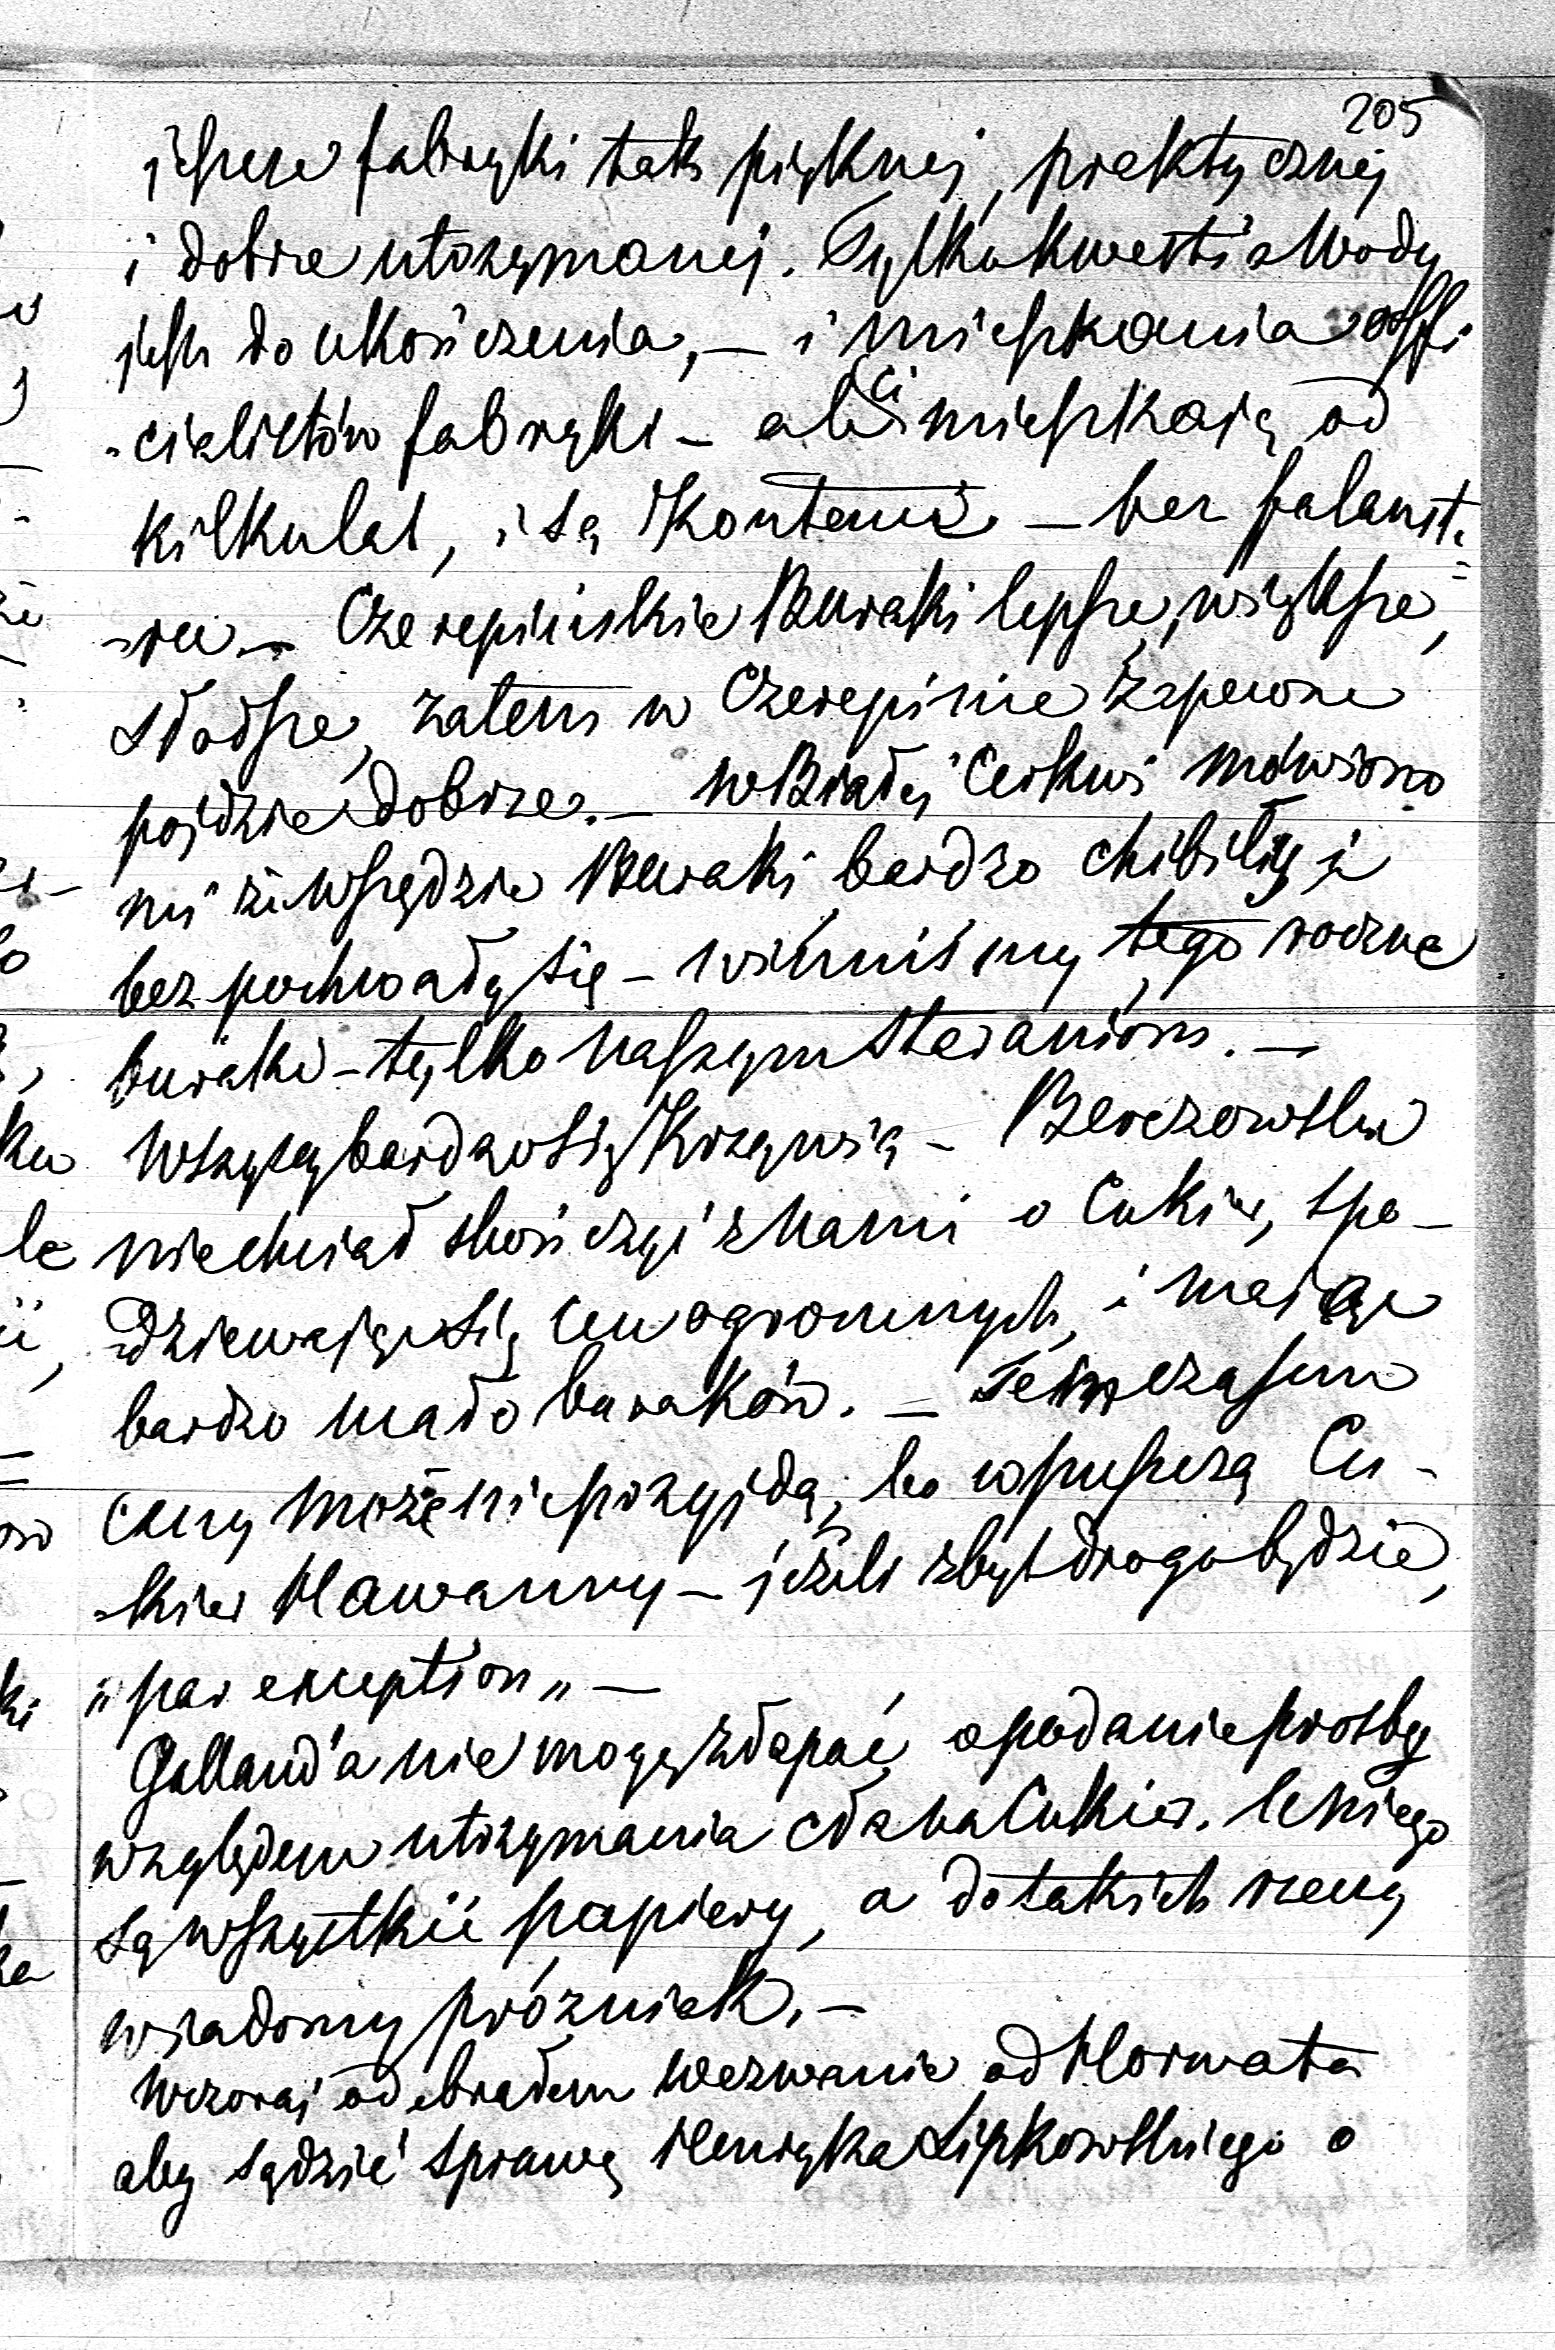 205
jeszcze fabryki tak pięknej, praktycznej
i dobrze utrzymanej. Tylko kwestia Wody
jest do ukończenia, — i mieszkania offi-
-cialistów fabryki — ale ci mieszkają od
kilku lat, i są Kontenci — bez falanst-
-ru — Czerepińskie Buraki lepsze, większe,
słodsze, zatem w Czerepinie zapewne
pójdzie dobrze. — W Białej Cerkwi mówiono
mi że wszędzie Buraki bardzo chibiły i
bez pochwały się — winniśmy tego roczne
buraki — tylko naszym staraniom. —
Wszyscy bardzo się Krzywią — Berezowski
nie chciał skończyć z Nami o Cukier, spo-
-dziewając się Cen ogromnych, i mając
bardzo mało buraków. — Tem czasem
ceny może nie przyjdą, bo wpuszczą Cu-
-kier Hawanny — jeżeli zbyt drogo będzie,
„par exception„ —
Galland'a nie mogę złapać, o podanie prosby
względem utrzymania cła na Cukier. U niego
są wszystkie papiery, a do takich rzeczy
wiadomy próżniak. —
Wczoraj odebrałem wezwanie od Horwata
aby sądzić sprawę Henryka Lipkowskiego o